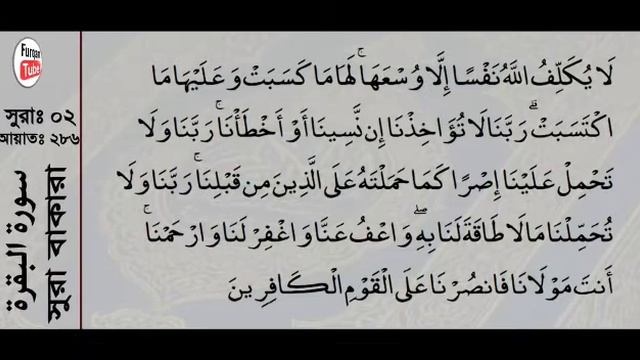 Furqan
Tube
সুরাঃ ০২
আয়াতঃ ২৮৬
سورة البقرة
সুরা বাকারা
لَا يُكَلِّفُ اللَّهُ نَفْسًا إِلَّا وُسْعَهَا ۚ لَهَا مَا كَسَبَتْ وَعَلَيْهَا مَا
اكْتَسَبَتْ ۗ رَبَّنَا لَا تُؤَاخِذْنَا إِن نَّسِينَا أَوْ أَخْطَأْنَا ۚ رَبَّنَا وَلَا
تَحْمِلْ عَلَيْنَا إِصْرًا كَمَا حَمَلْتَهُ عَلَى الَّذِينَ مِن قَبْلِنَا ۚ رَبَّنَا وَلَا
تُحَمِّلْنَا مَا لَا طَاقَةَ لَنَا بِهِ ۖ وَاعْفُ عَنَّا وَاغْفِرْ لَنَا وَارْحَمْنَا ۚ
أَنتَ مَوْلَانَا فَانصُرْنَا عَلَى الْقَوْمِ الْكَافِرِينَ